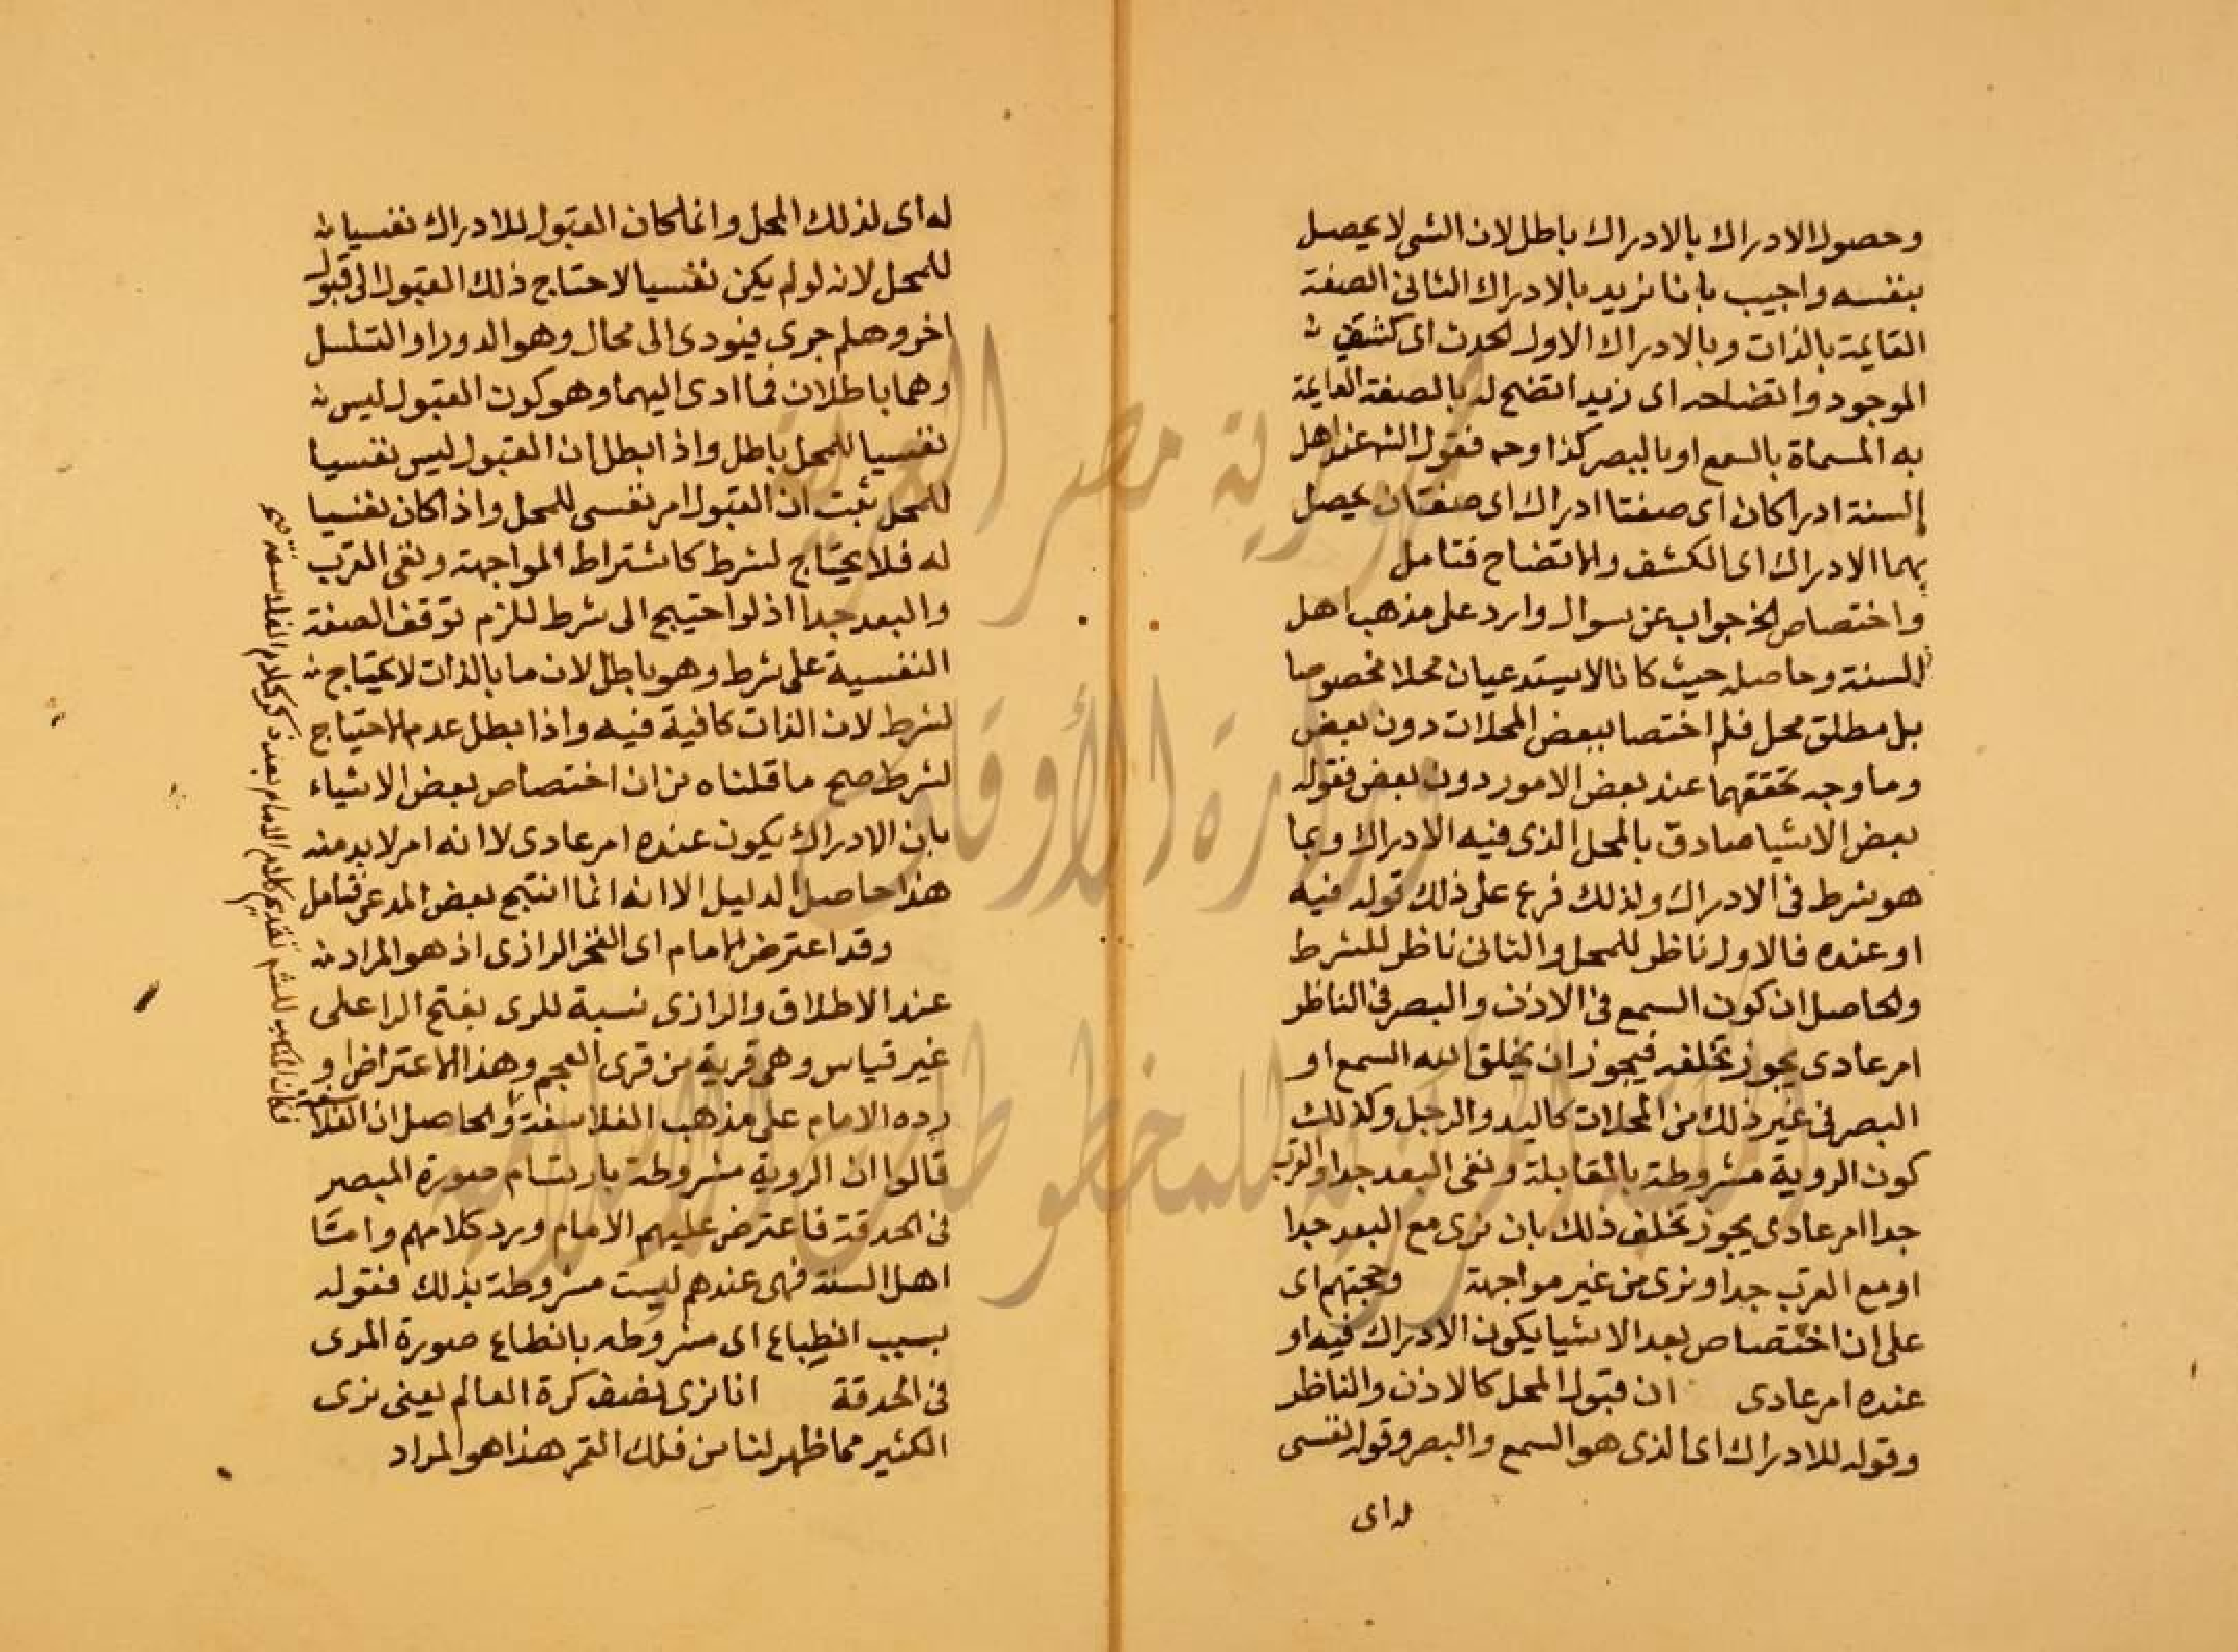 وحصول الادراك بالادراك باطل لان الشى لا يحصل
بنفسه واجيب باننا نريد بالادراك الثانى الصفة
القايمة بالذات وبالادراك الاول الحدث اى كشف
الموجود واتضاحه اى زيد اتضح له بالصفة القايمة
به المسماة بالسمع او بالبصر كذا وحـ فقول الشـ عند اهل
السنة ادراكان اى صفتا ادراك اى صفتان يحصل
بهما الادراك اى الكشف والاتضاح فتامل
واختصاص الخ جواب عن سوال وارد على مذهب اهل
السنة وحاصله حيث كانا لا يستدعيان محلا مخصوصا
بل مطلق محل فلم اختصا ببعض المحلات دون بعض
وما وجه تحققهما عند بعض الامور دون بعض فقوله
بعض الاشيا صادق بالمحل الذى فيه الادراك وبما
هو شرط فى الادراك ولذلك فرع على ذلك قوله فيه
او عنده فالاول ناظر للمحل والثانى ناظر للشرط
والحاصل ان كون السمع فى الاذن والبصر فى الناظر
امر عادى يجوز تخلفه فيجوز ان يخلق الله السمع او
البصر فى غير ذلك من المحلات كاليد والرجل وكذلك
كون الروية مشروطة بالمقابلة ونفى البعد جدا والقرب
جدا امر عادى يجوز تخلف ذلك بان نرى مع البعد جدا
او مع القرب جدا ونرى من غير مواجهة وحجتهم اى
على ان اختصاص بعد الاشيا يكون الادراك فيه او
عنده امر عادى ان قبول المحل كالاذن والناظر
وقوله للادراك اى الذى هو السمع والبصر وقوله نفسى
له اى
له اى لذلك المحل وانما كان القبول للادراك نفسيا
للمحل لانه لو لم يكن نفسيا لاحتاج ذلك القبول الى قبول
اخر وهلم جرى فيودى الى محال وهو الدور او التسلسل
وهما باطلان فما ادى اليهما وهو كون القبول ليس
نفسيا للمحل باطل واذا بطل ان القبول ليس نفسيا
للمحل ثبت ان القبول امر نفسى للمحل واذا كان نفسيا
له فلا يحتاج لشرط كاشتراط المواجهة ونفى القرب
والبعد جدا اذ لو احتيج الى شرط للزم توقف الصفة
النفسية على شرط وهو باطل لان ما بالذات لا يحتاج
لشرط لان الذات كافية فيه واذا بطل عدم الاحتياج
لشرط صح ما قلناه من ان اختصاص بعض الاشياء
بان الادراك يكون عنده امر عادى لا انه امر لا بد منه
هذا حاصل الدليل الا انه انما انتج بعض المدعى فتامل
وقد اعترض الامام اى الفخر الرازى اذ هو المراد
عند الاطلاق والرازى نسبة للرى بفتح الرا على
غير قياس وهى قرية من قرى العجم وهذا الاعتراض و
رده الامام على مذهب الفلاسفة والحاصل ان الفلاسفة
قالوا ان الروية مشروطة بارتسام صورة المبصر
فى الحدقة فاعترض عليهم الامام ورد كلامهم وامّا
اهل السنة فهى عندهم ليست مشروطة بذلك فقوله
بسبب انطباع اى مشروطه بانطباع صورة المرى
فى الحدقة انا نرى نصف كرة العالم يعنى نرى
الكثير مما ظهر لنا من فلك القمر هذا هو المراد
فكان المناسب للشـ تقديم كلام الامام بعد ذكر كلام الفلاسفة
جمهورية مصر العربية
وزارة الأوقاف
المكتبة المركزية للمخطوطات الإسلامية